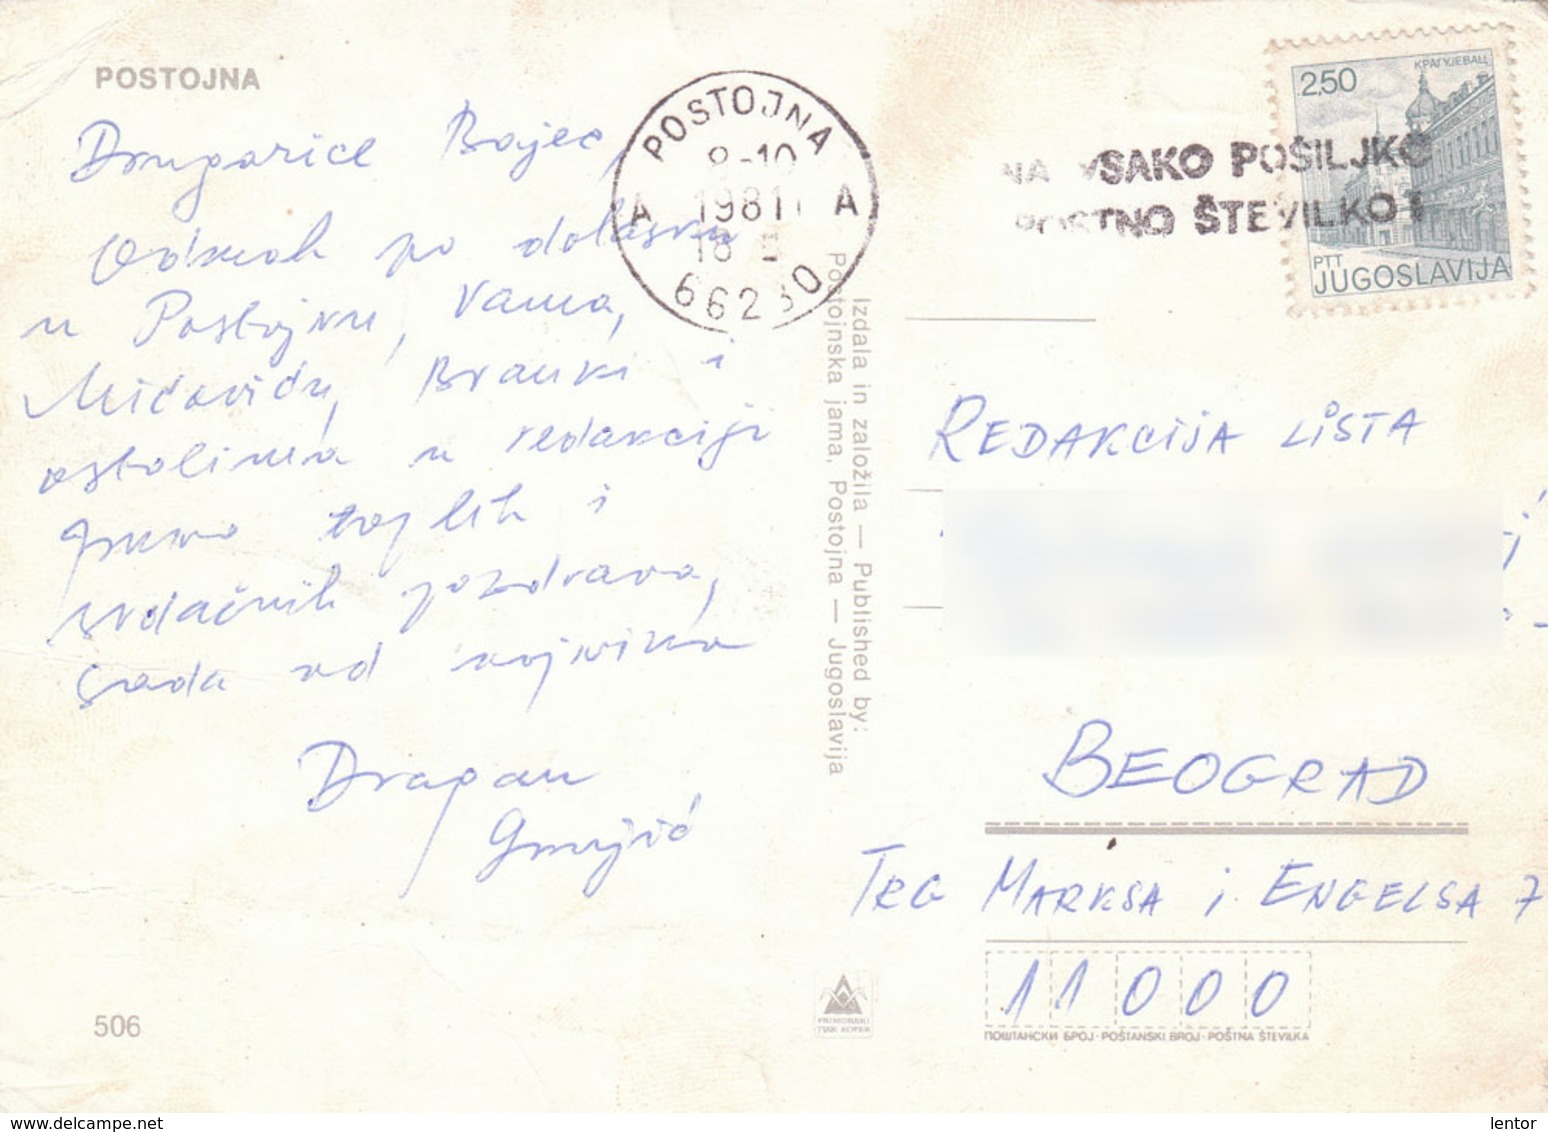 POSTOJNA
Drugarice Bajec,
Odmah po dolasku
u Postojnu, Vama,
Mićoviću, Branki i
ostalima u redakciji
puno toplih i
srdačnih pozdrava,
sada od
Dragan
506
POSTOJNA
8-10
A 1981 A
18
66230
Izdala in založila — Published by:
Postojnska jama, Postojna — Jugoslavija
NA VSAKO POŠILJKO
POŠTNO ŠTEVILKO!
2,50
КРАГУЈЕВАЦ
PTT
JUGOSLAVIJA
REDAKCIJA LISTA
BEOGRAD
TRG MARKSA i ENGELSA 7
11000
PRIMORSKI
TISK KOPER
ПОШТАНСКИ БРОЈ · POŠTANSKI BROJ · POŠTNA ŠTEVILKA
lentor